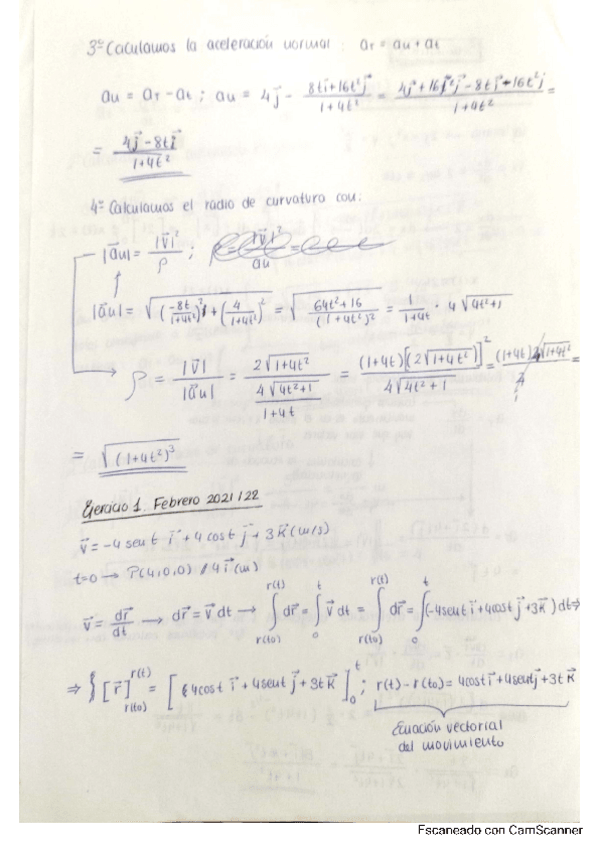 3º Calculamos la aceleración normal : aт = au + at
au = aт - at ; au = 4j⃗ - (8ti⃗ + 16t²j⃗)/(1+4t²) = (4j⃗ + 16t²j⃗ - 8ti⃗ - 16t²j⃗)/(1+4t²) =
= (4j⃗ - 8ti⃗)/(1+4t²)
4º Calculamos el radio de curvatura con:
|a⃗u| = |V⃗|²/ρ ; |V⃗|²/au =
|a⃗u| = √((-8t/(1+4t²))² + (4/(1+4t²))²) = √((64t²+16)/(1+4t²)²) = 1/(1+4t) · 4√(4t²+1)
ρ = |V⃗|/|a⃗u| = 2√(1+4t²)/(4√(4t²+1)/(1+4t)) = (1+4t)[2√(1+4t²)]²/(4√(4t²+1)) = (1+4t) 4√(1+4t²)/4 =
= √((1+4t²)³)
Ejercicio 1. Febrero 2021/22
v⃗ = -4 sent i⃗ + 4 cost j⃗ + 3k⃗ (m/s)
t=0 → P(4,0,0) // 4i⃗ (m)
v⃗ = dr⃗/dt → dr⃗ = v⃗ dt → ∫r(to)r(t) dr⃗ = ∫0t v⃗ dt = ∫r(to)r(t) dr⃗ = ∫0t (-4sent i⃗ + 4cost j⃗ + 3k⃗) dt ⇒
⇒ [r⃗]r(to)r(t) = [4cost i⃗ + 4sent j⃗ + 3t k⃗]0t ; r(t) - r(to) = 4cost i⃗ + 4sent j⃗ + 3t k⃗
Ecuación vectorial
del movimiento
Escaneado con CamScanner